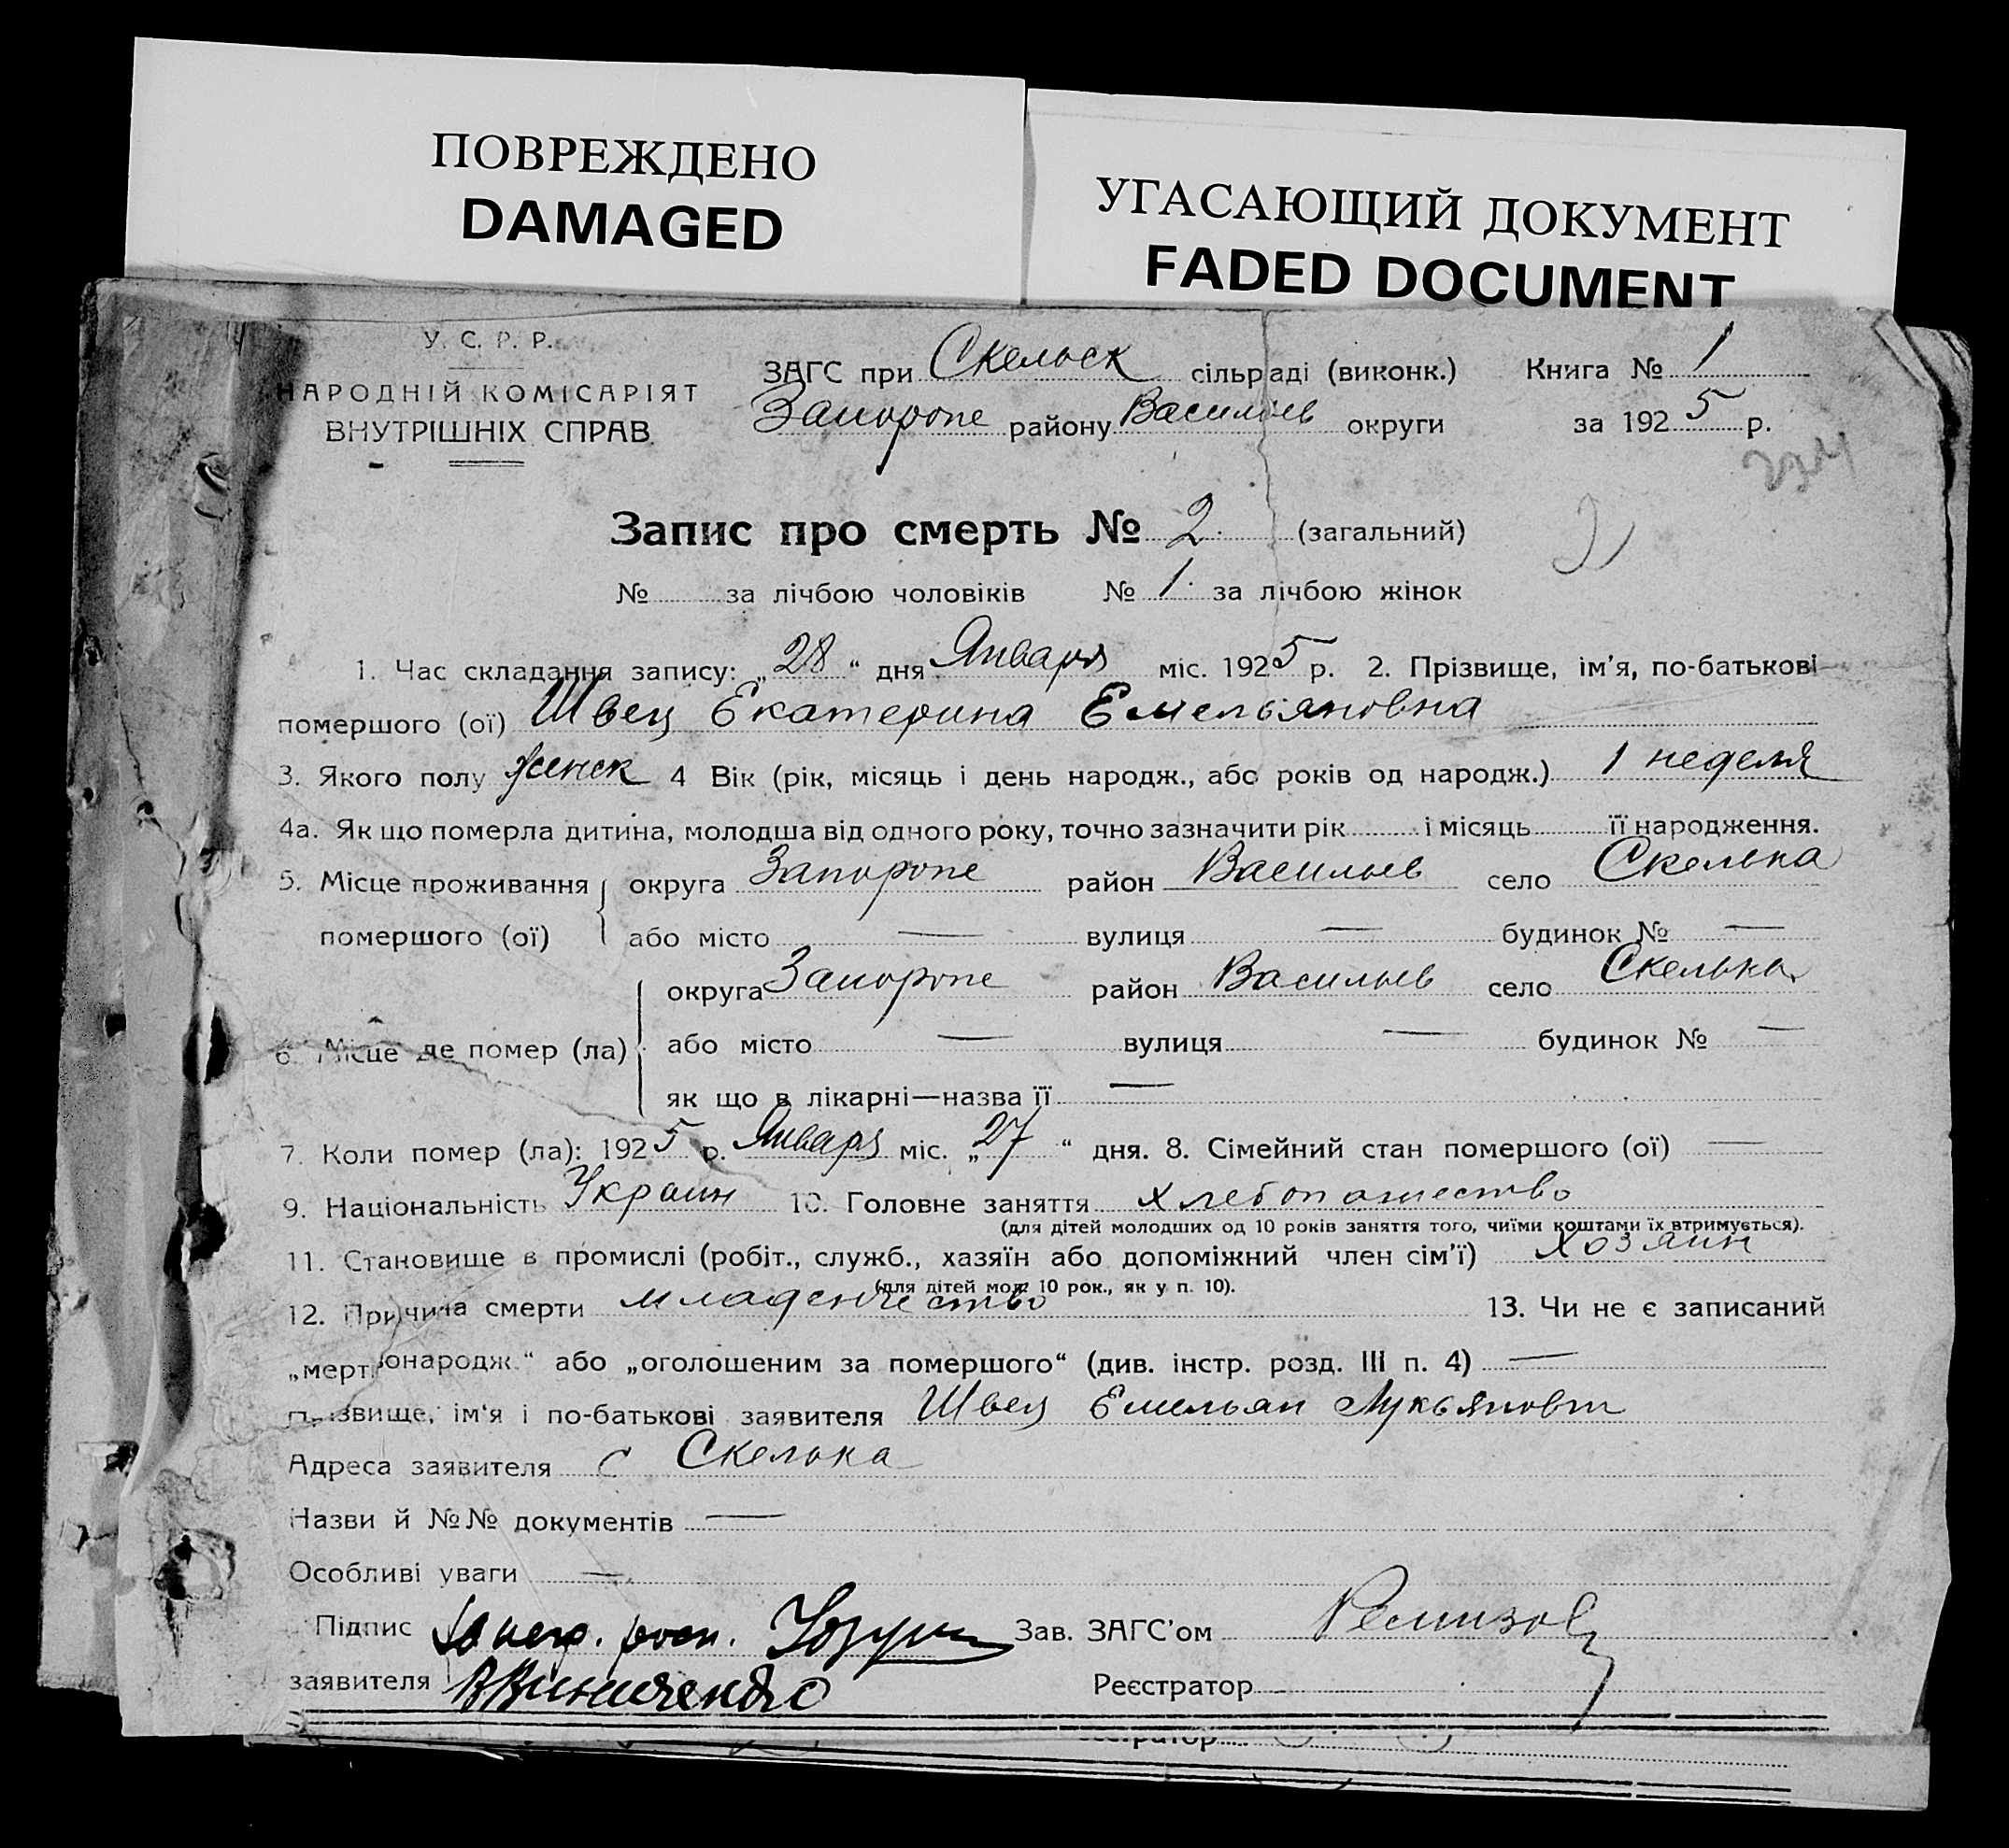 ПОВРЕЖДЕНО
DAMAGED
УГАСАЮЩИЙ ДОКУМЕНТ
FADED DOCUMENT
У. С. Р. Р.
НАРОДНІЙ КОМІСАРІЯТ
ВНУТРІШНІХ СПРАВ
ЗАГС при Скельск сільраді (виконк.) Книга № 1
району Васильев округи за 1925 р.
Запис про смерть № 2 (загальний)
№ за лічбою чоловіків № 1 за лічбою жінок
1. Час складання запису: „28“ дня Января міс. 1925 р. 2. Прізвище, ім'я, по-батькові
помершого (ої) Швец Екатерина Емельяновна
3. Якого полу женск 4 Вік (рік, місяць і день народж., або років од народж.) 1 неделя
4а. Як що померла дитина, молодша від одного року, точно зазначити рік і місяць її народження.
5. Місце проживання округа район Васильев село Скелька
помершого (ої) або місто — вулиця — будинок № —
округа район Васильев село Скелька
6. Місце де помер (ла) або місто — вулиця — будинок № —
як що в лікарні—назва її —
7. Коли помер (ла): 1925 р. Января міс. „27“ дня. 8. Сімейний стан помершого (ої) —
9. Національність Украин 10. Головне заняття хлебопашество
(для дітей молодших од 10 років заняття того, чиїми коштами їх втримується).
11. Становище в промислі (робіт., служб., хазяїн або допоміжний член сім'ї) хозяин
(для дітей мол. 10 рок., як у п. 10).
12. Причина смерти младенчество 13. Чи не є записаний
„мертвонародж.“ або „оголошеним за помершого“ (див. інстр. розд. III п. 4) —
Прізвище, ім'я і по-батькові заявителя Швец Емельян Лукьянович
Адреса заявителя с Скелька
Назви й №№ документів —
Особливі уваги —
Підпис За негр. росп. Зав. ЗАГС'ом Ремизов
заявителя В Винниченко Реєстратор